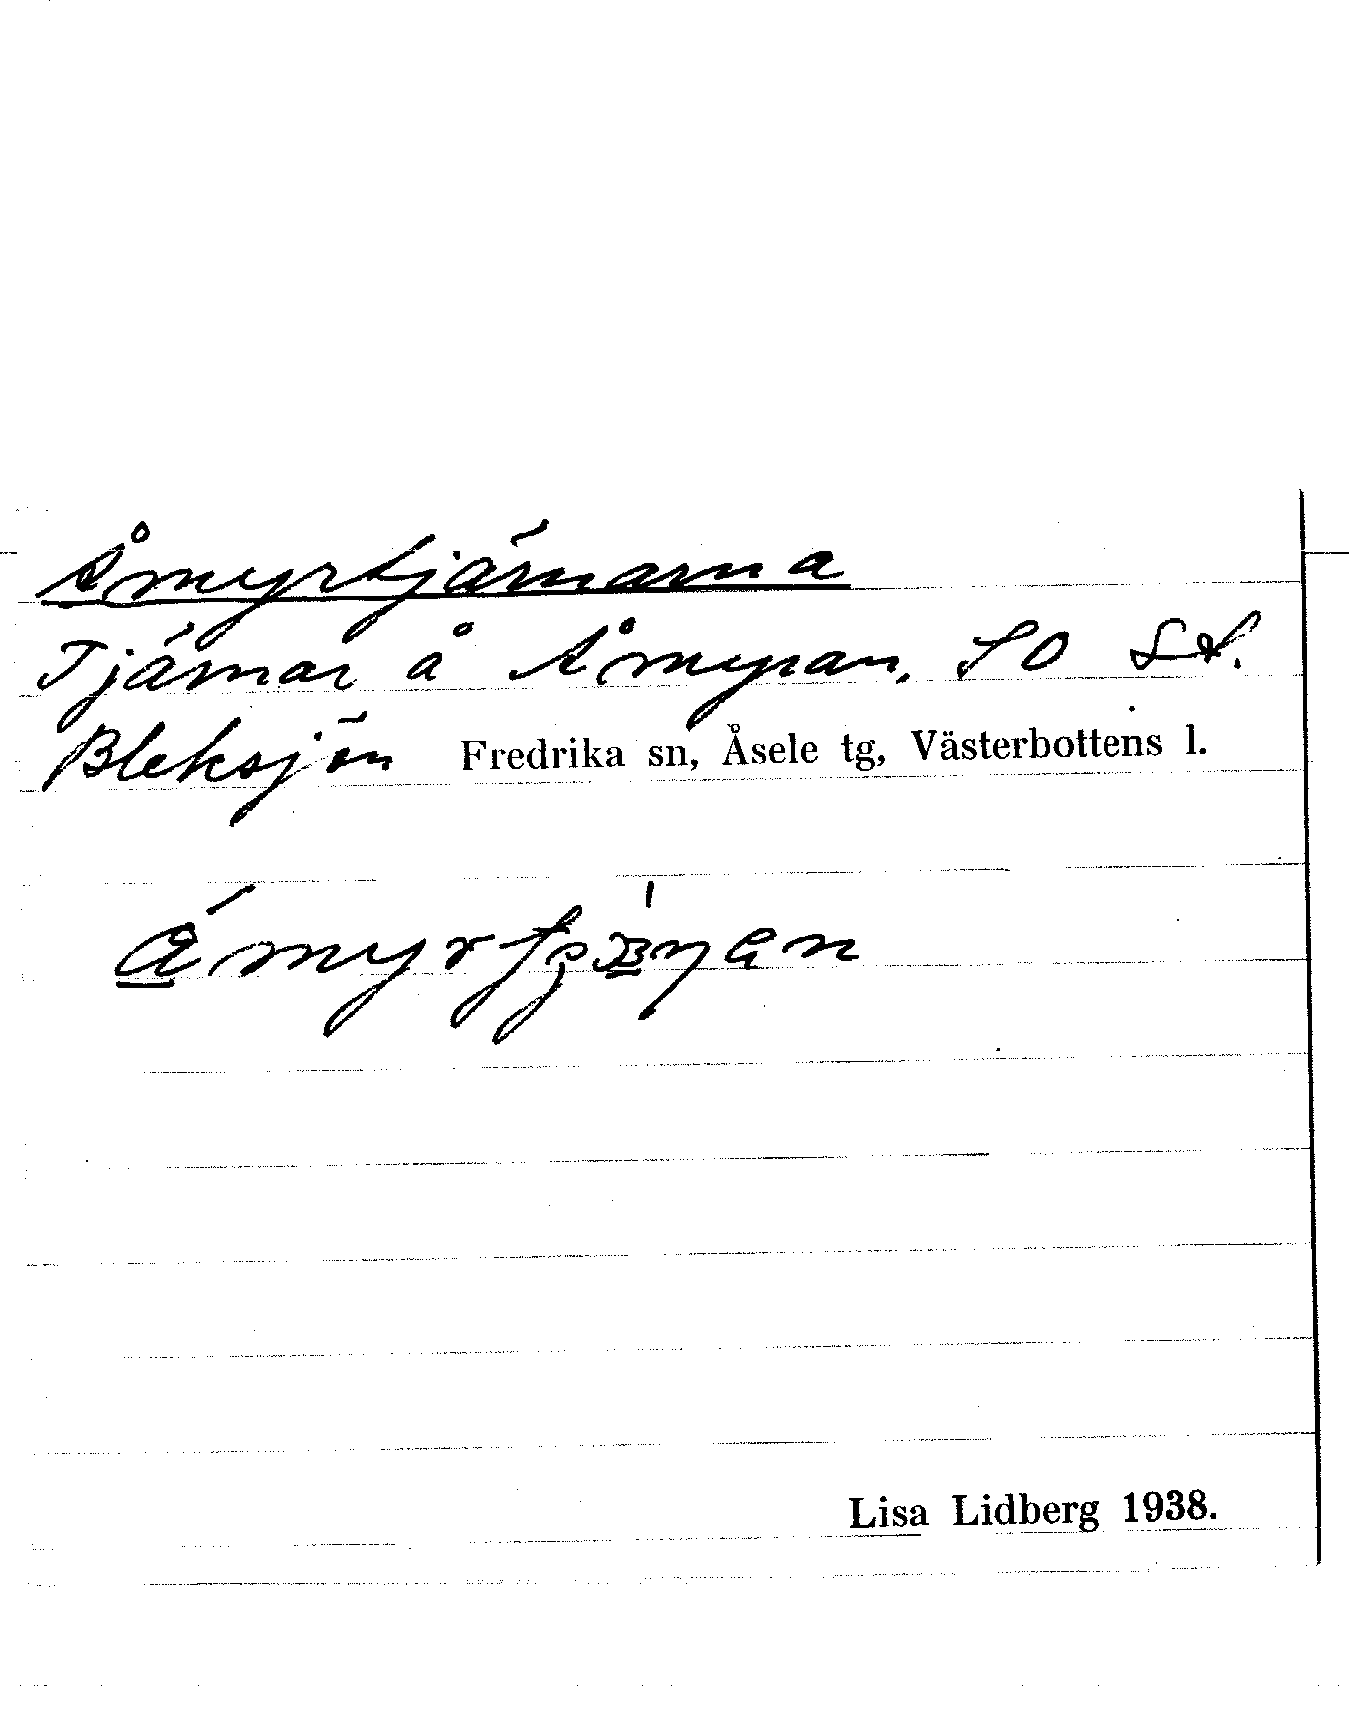 Åmyrtjärnarna
Tjärnar å Åmyran, SO St.
Bleksjön Fredrika sn, Åsele tg, Västerbottens l.
Lisa Lidberg 1938.